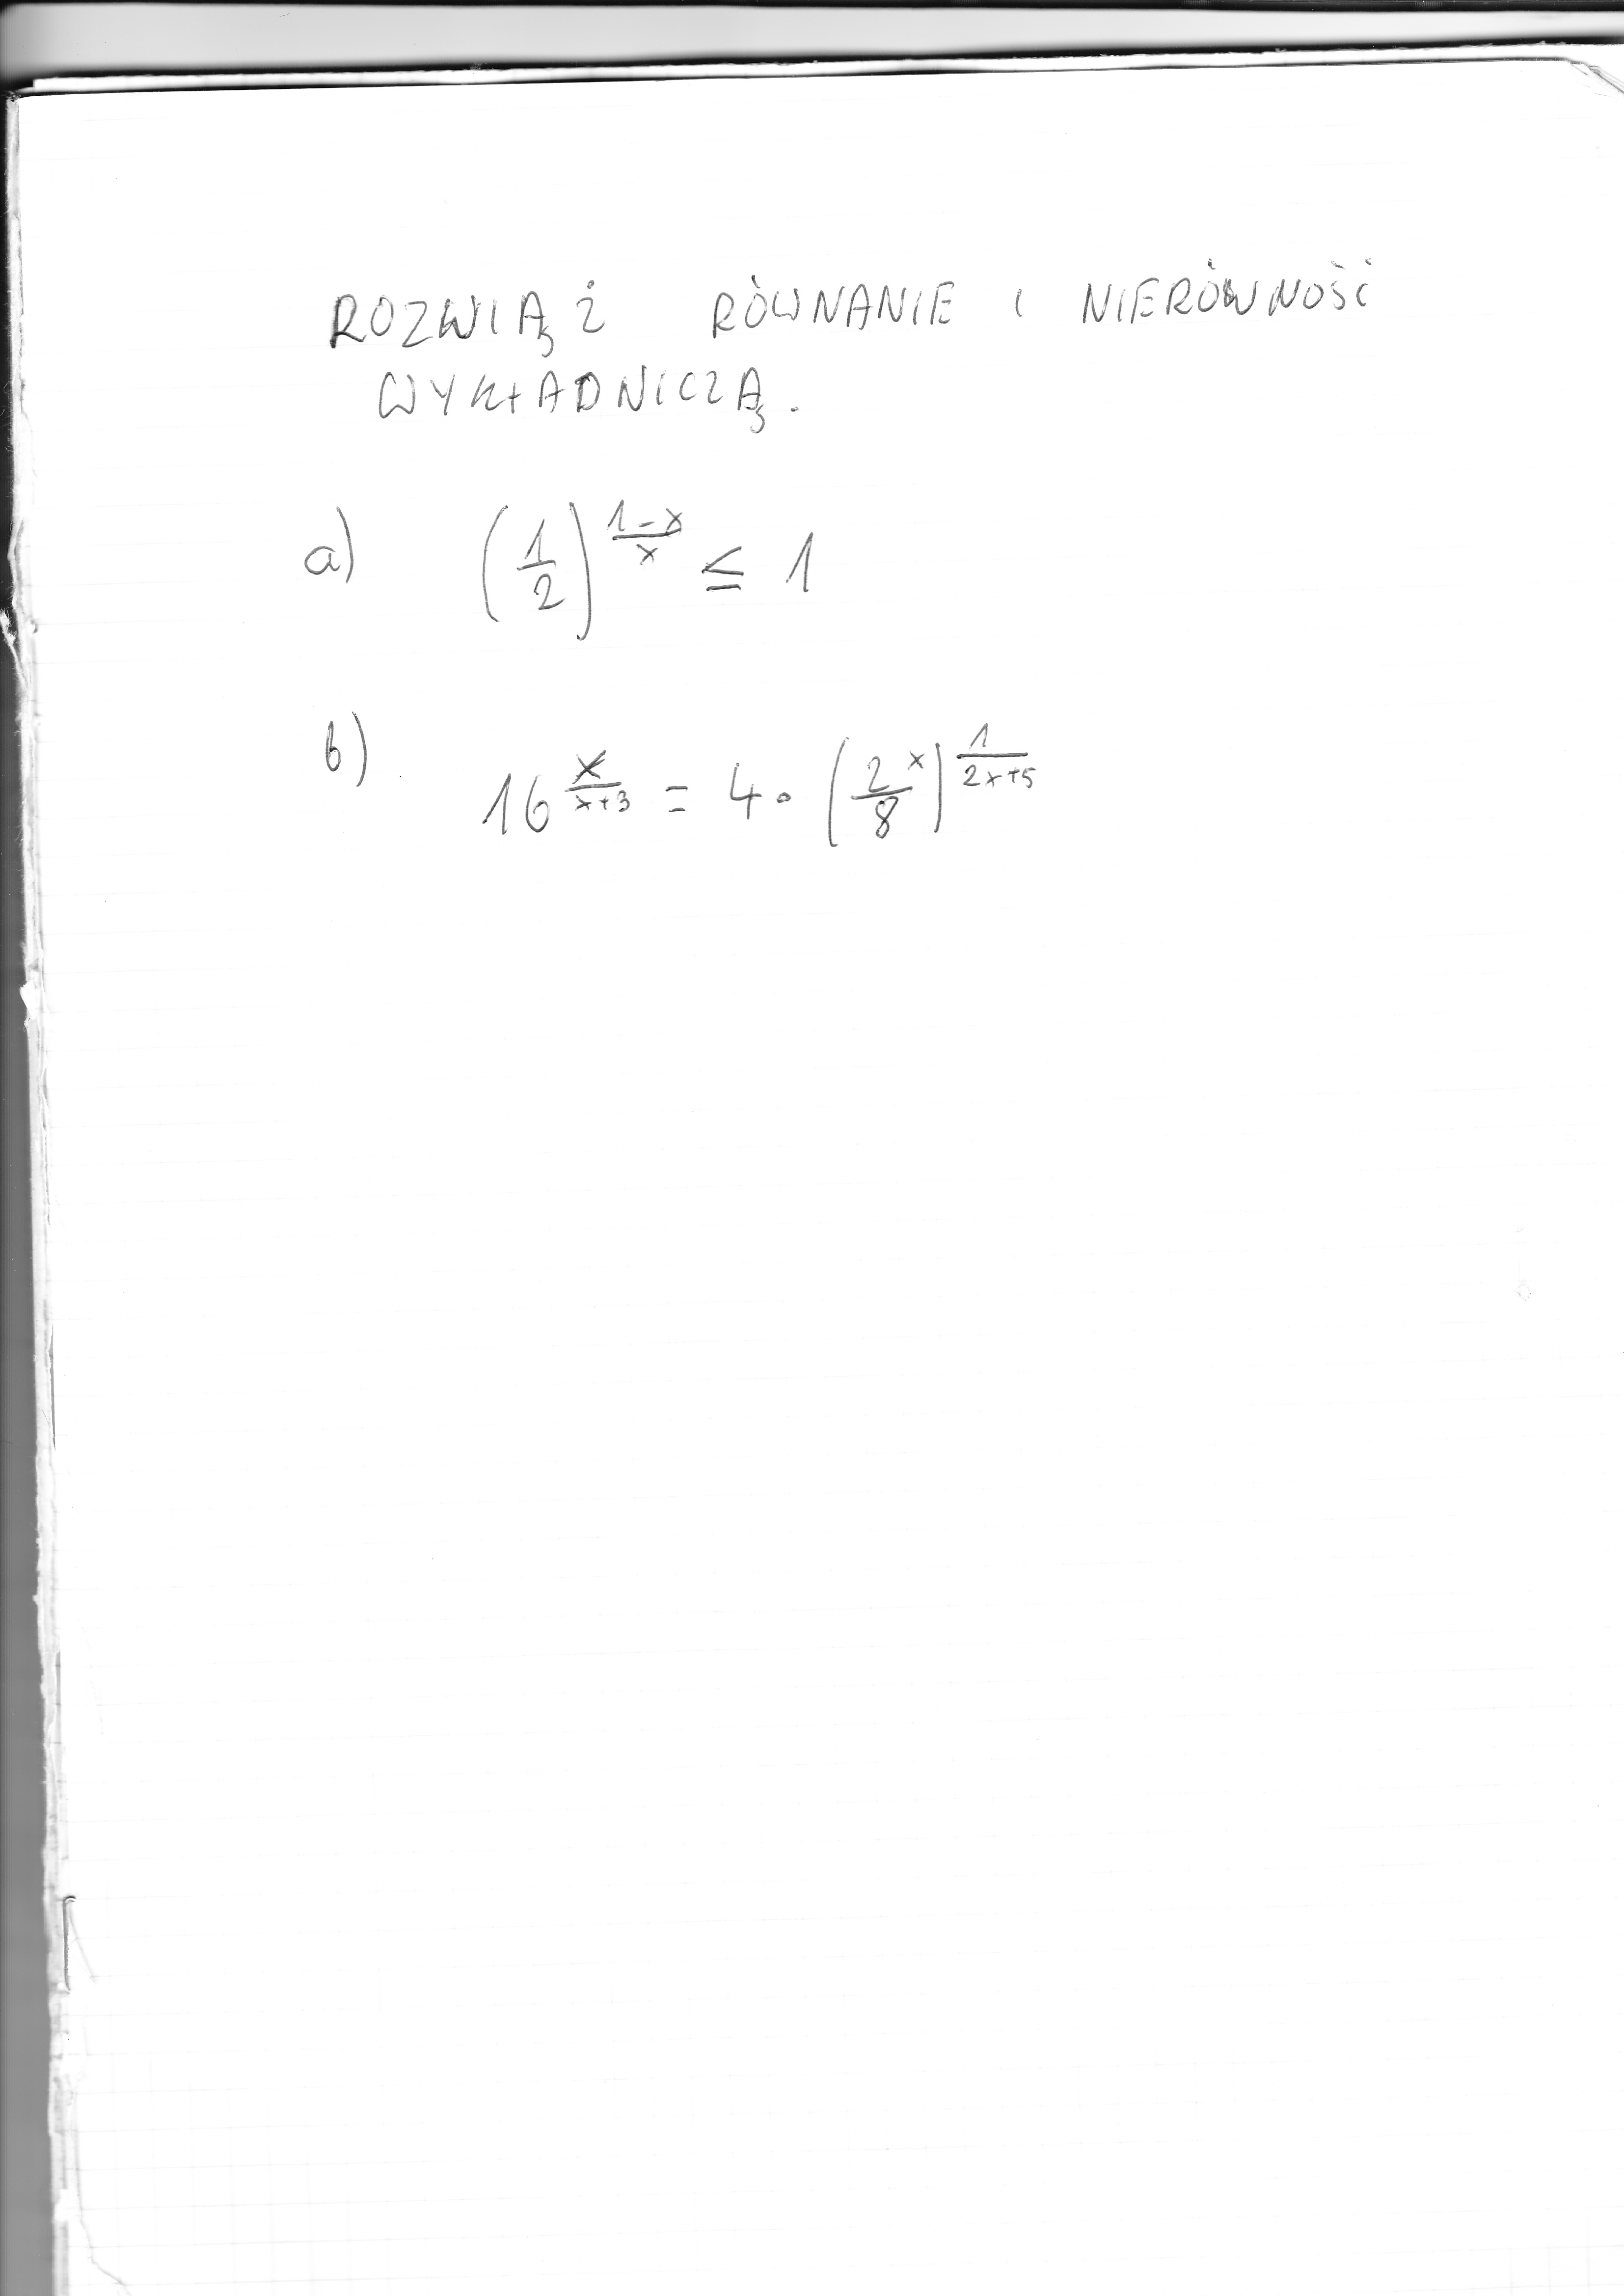 ROZWIĄŻ RÓWNANIE I NIERÓWNOŚĆ
WYKŁADNICZĄ.
a) (1/2)^((1-x)/x) ≤ 1
b) 16^(x/(x+3)) = 4 · (2^x/8)^(1/(2x+5))